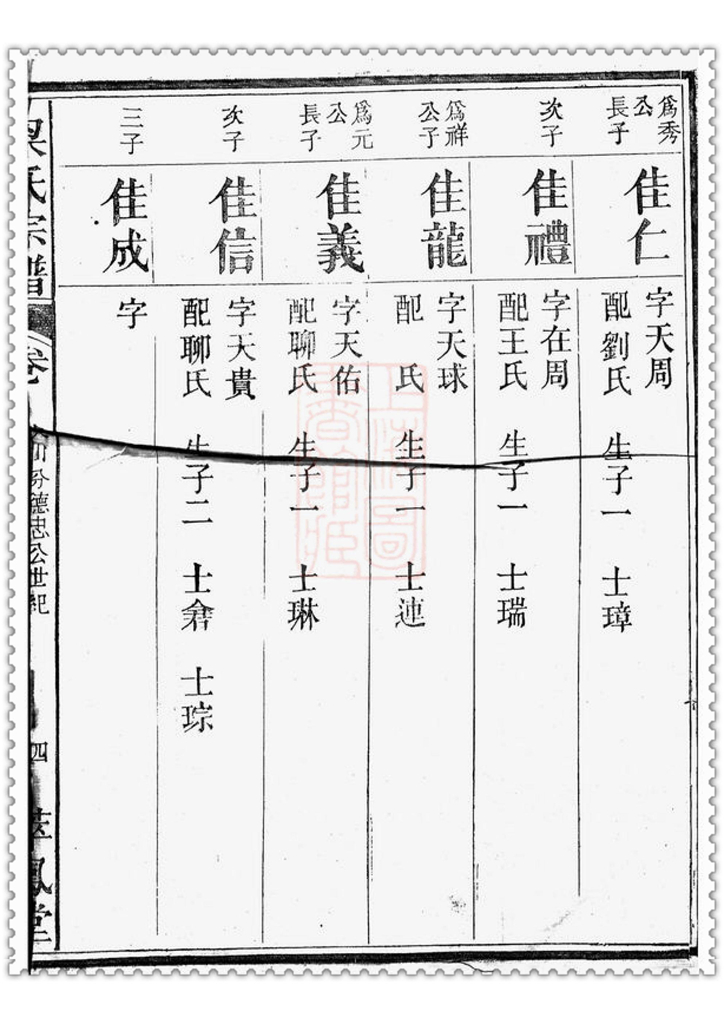 爲秀
公
長子
佳仁
字天周
配劉氏　生子一　士璋
次子
佳禮
字在周
配王氏　生子一　士瑞
爲祥
公子
佳龍
字天球
配　氏　生子一　士連
爲元
公
長子
佳義
字天佑
配聊氏　生子一　士琳
次子
佳信
字天貴
配聊氏　生子二　士倉　士琮
三子
佳成
字
氏宗譜
卷
德忠公世紀
四
鳳堂
上海圖
書館